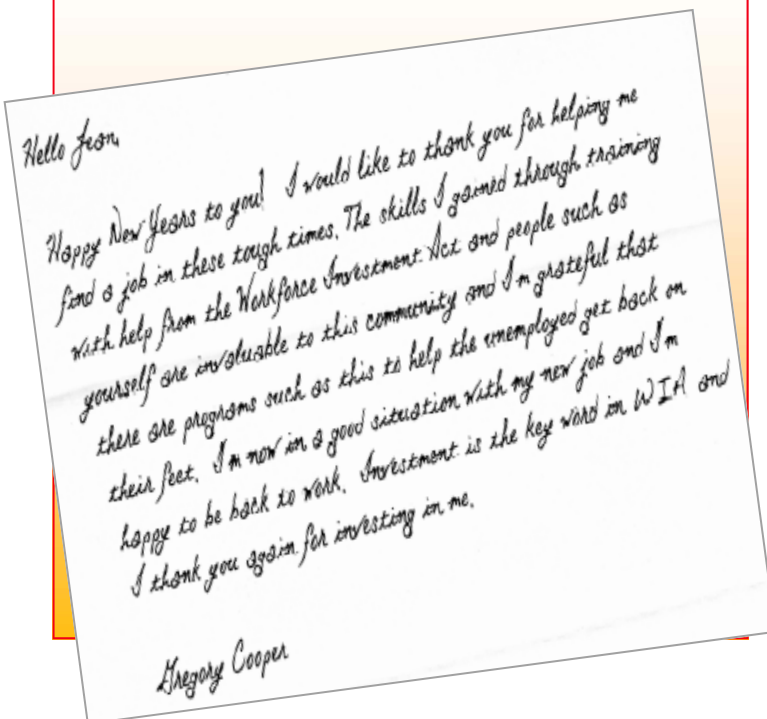 Hello Jean,
Happy New Years to you! I would like to thank you for helping me
find a job in these tough times. The skills I gained through training
with help from the Workforce Investment Act and people such as
yourself are invaluable to this community and I'm grateful that
there are programs such as this to help the unemployed get back on
their feet. I'm now in a good situation with my new job and I'm
happy to be back to work. Investment is the key word in WIA and
I thank you again for investing in me.
Gregory Cooper